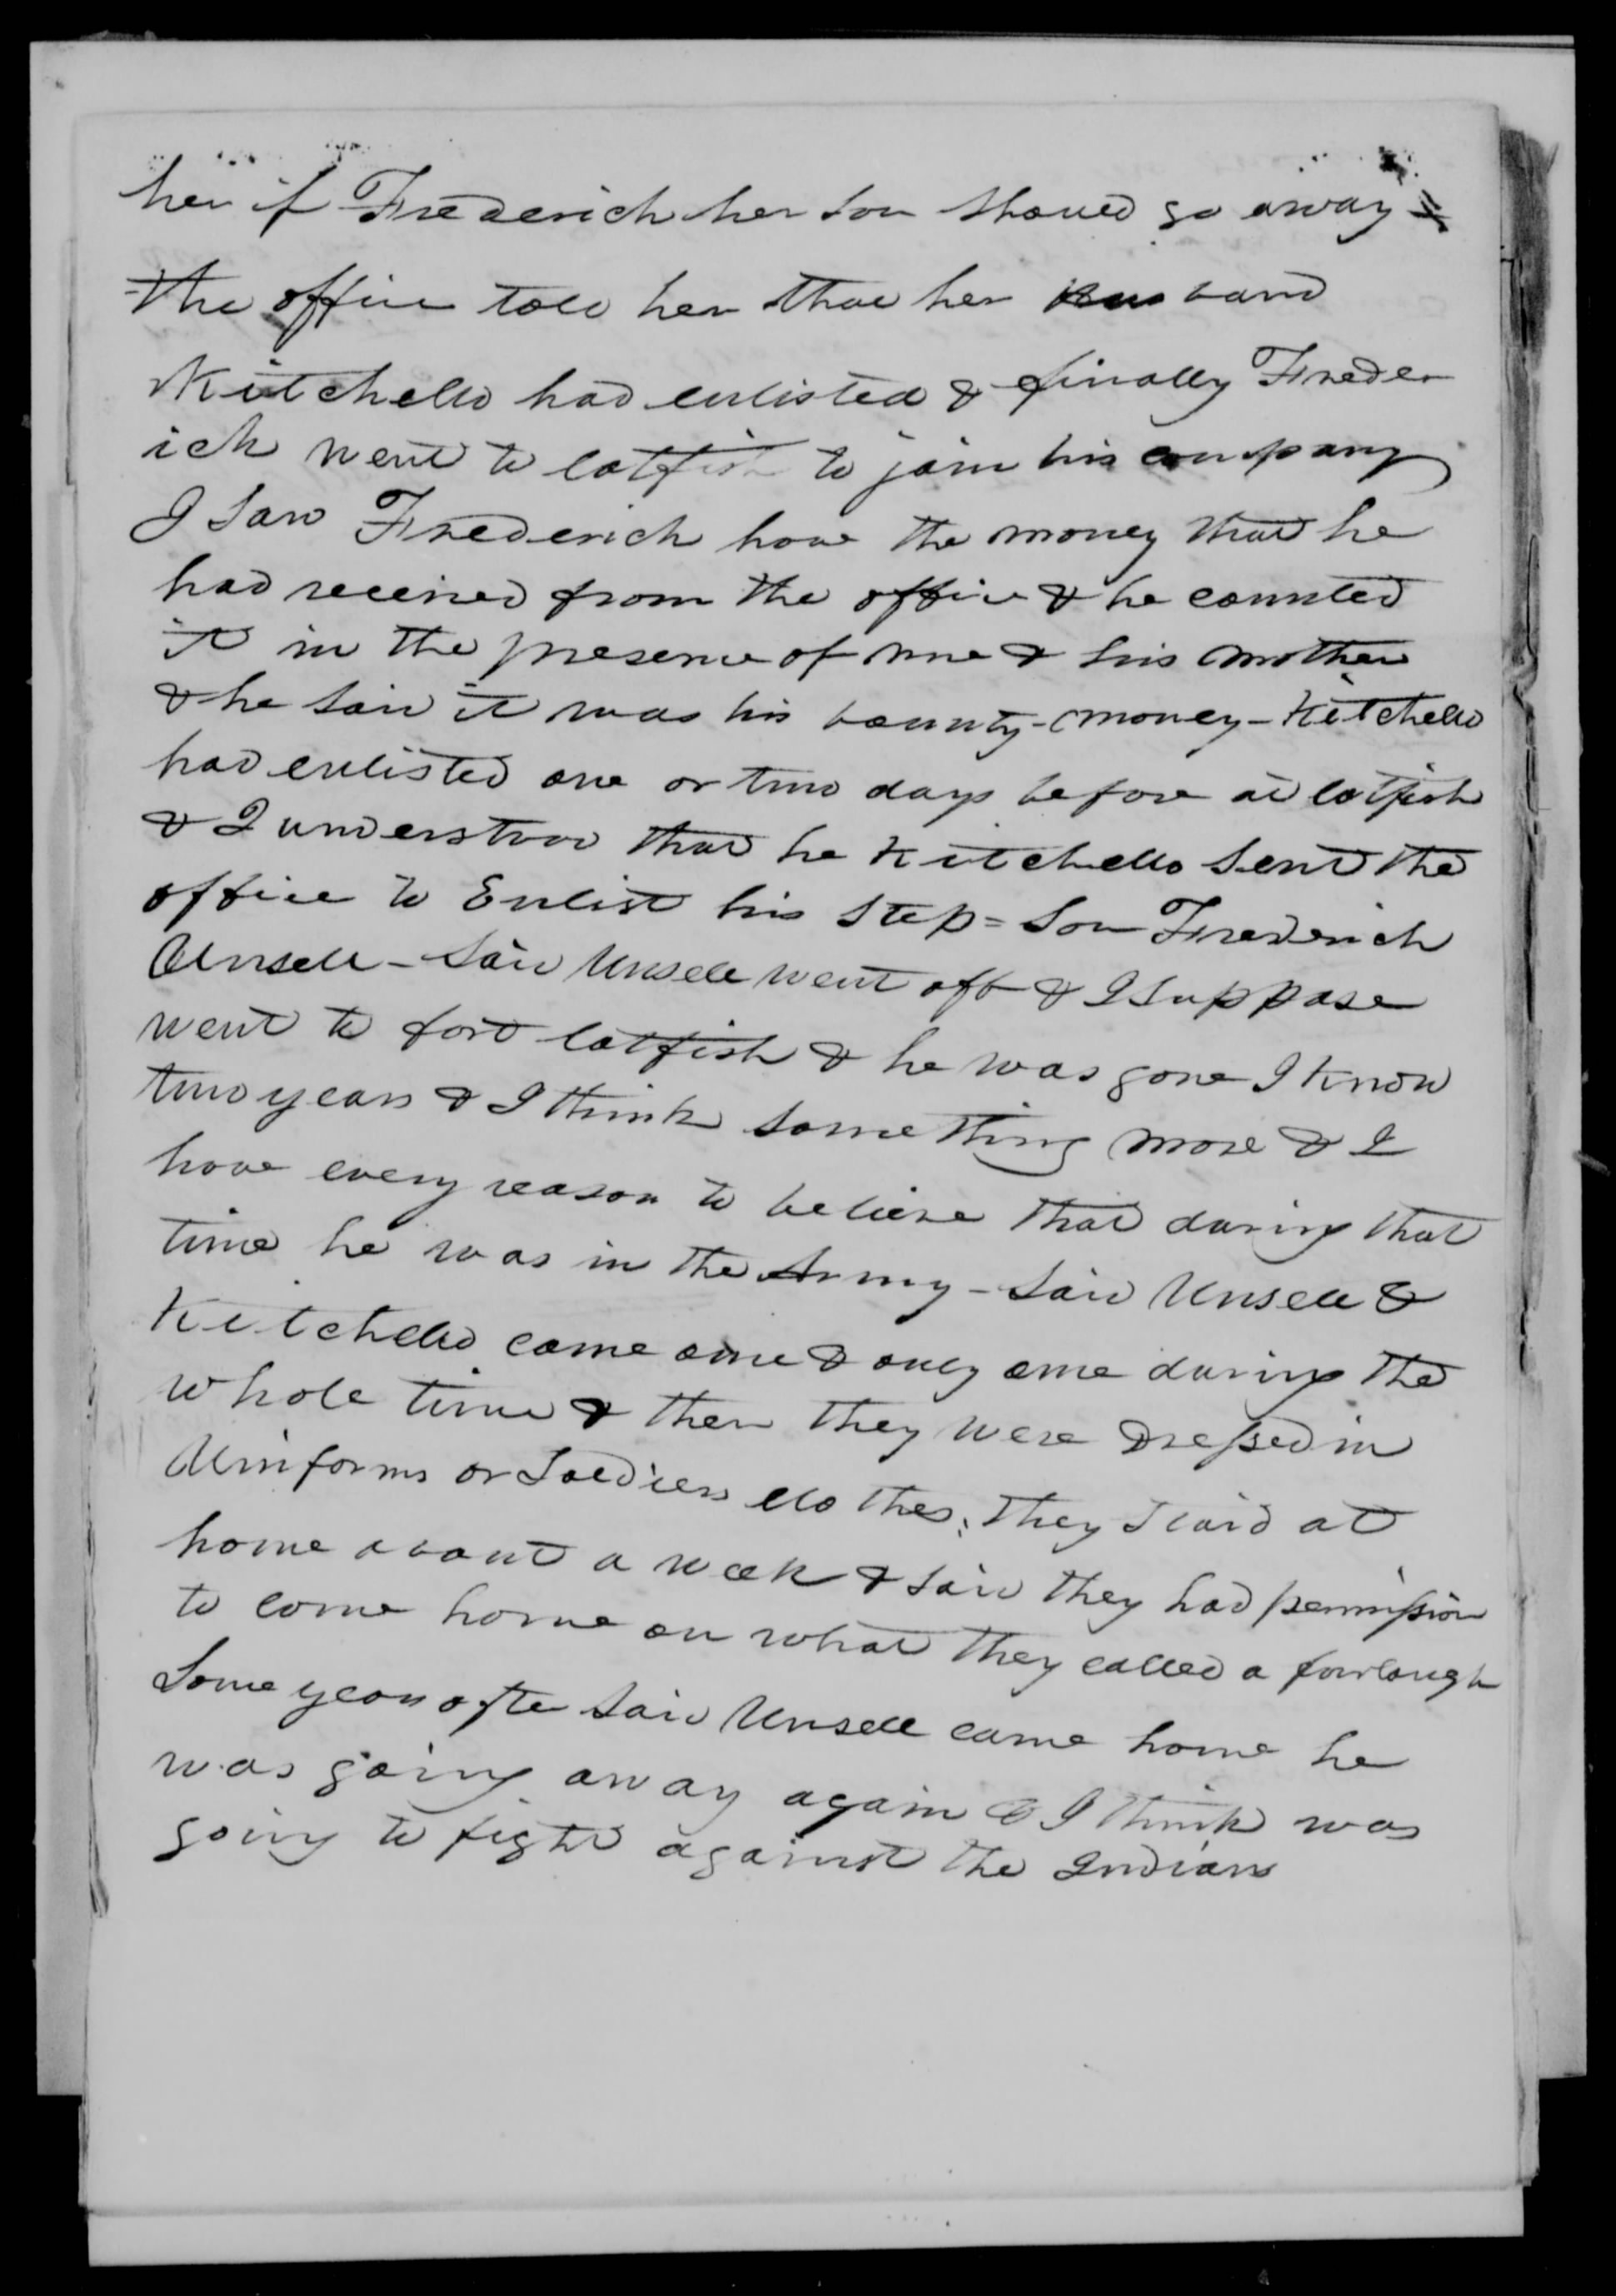 her if Frederich her son should go away &
the officer told her that her husband
Kitchell had enlisted & finally Freder
ich went to Catfish to join his company
I saw Frederich have the money that he
had received from the officer & he counted
it in the presence of me & his mother
& he said it was his bounty-money - Kitchell
had enlisted one or two days before at Catfish
& I understood that he Kitchell sent the
officer to Enlist his Step=Son Frederich
Unsell - Said Unsell went off & I suppose
went to fort Catfish & he was gone I know
two years & I think something more & I
have every reason to believe that during that
time he was in the Army - Said Unsell &
Kitchell came once & only once during the
whole time & then they were dressed in
Uniforms or Soldiers clothes; they staid at
home about a week & said they had permission
to come home on what they called a fourlough
Some years after said Unsell came home he
was going away again & I think was
going to fight against the Indians